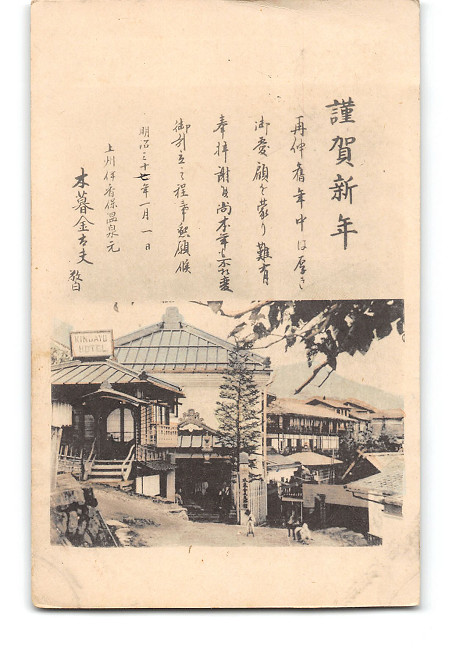 謹賀新年
再伸舊年中は厚き
御愛顧を蒙り難有
奉拝謝候尚本年も不相変
御引立之程奉懇願候
明治三十七年一月一日
上州伊香保温泉元
木暮金太夫
敬白
KINDAYU
HOTEL